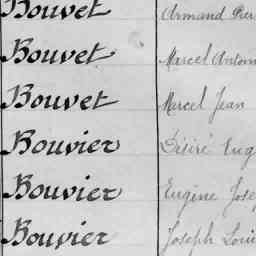 Bouvet Armand Pier
Bouvet Marcel Anton
Bouvet Marcel Jean
Bouvier Désiré Eug
Bouvier Eugène Jose
Bouvier Joseph Loui